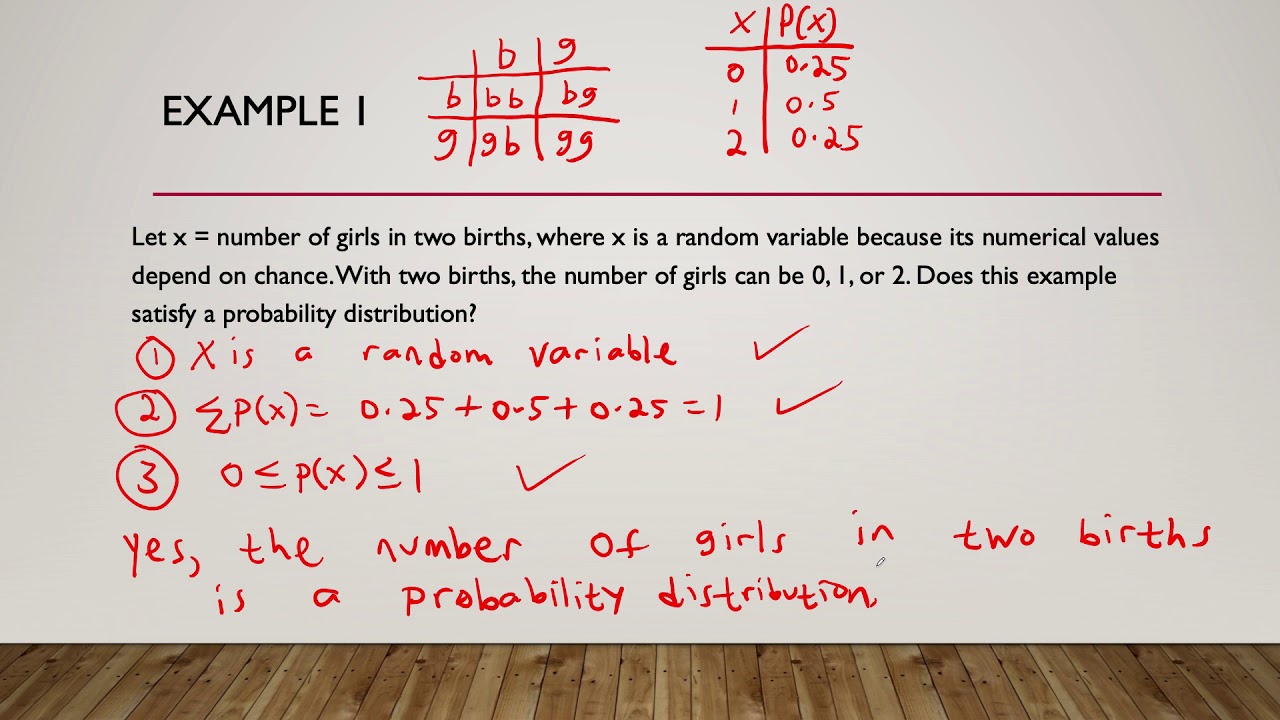 EXAMPLE 1
b g
b bb bg
g gb gg
x P(x)
0 0.25
1 0.5
2 0.25
Let x = number of girls in two births, where x is a random variable because its numerical values
depend on chance. With two births, the number of girls can be 0, 1, or 2. Does this example
satisfy a probability distribution?
① x is a random variable ✓
② ΣP(x) = 0.25 + 0.5 + 0.25 = 1 ✓
③ 0 ≤ P(x) ≤ 1 ✓
Yes, the number of girls in two births
is a probability distribution.